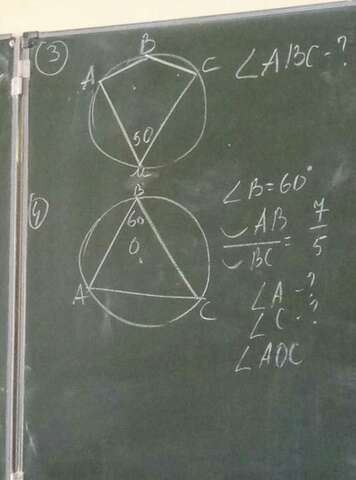 3
B
A
C
∠ABC - ?
50
M
4
B
60
O
A
C
∠B = 60°
◡AB / ◡BC = 7/5
∠A - ?
∠C - ?
∠AOC